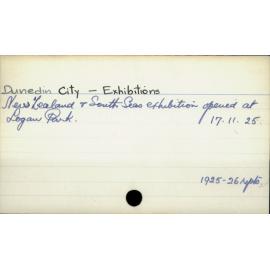 Dunedin City - Exhibitions
New Zealand & South Seas exhibition opened at
Logan Park. 17.11.25.
1925-26 repts.